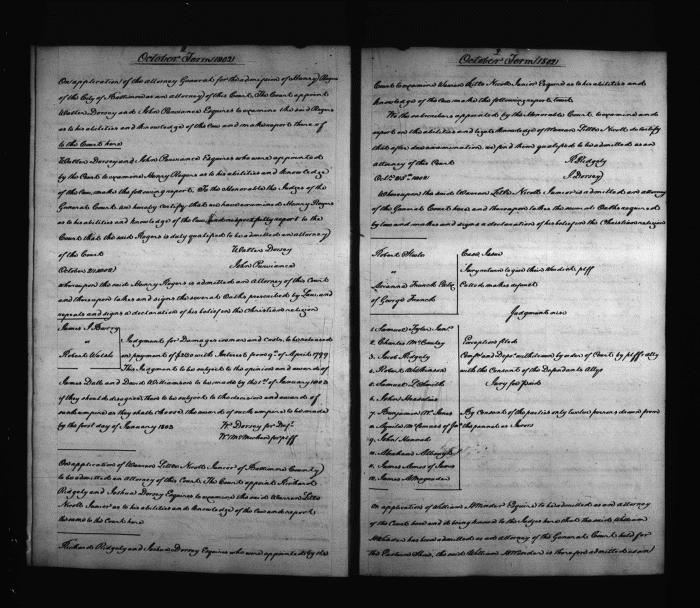 October Term 1802
On application of the attorney General for the admission of Henry Rogers
of the City of Baltimore as an attorney of this Court. The Court appoint
Walter Dorsey and John Purviance Esquires to examine the said Rogers
as to his abilities and knowledge of the law and make report thereof
to the Court here
Walter Dorsey and John Purviance Esquires who were appointed
by the Court to examine Henry Rogers as to his abilities and knowledge
of the law, make the following report. To the Honorable the Judges of the
General Court. We hereby certify that we have examined Henry Rogers
as to his abilities and knowledge of the law and respectfully report to the
Court that the said Rogers is duly qualified to be admitted an attorney
of the Court
Walter Dorsey
October 1802
John Purviance
whereupon the said Henry Rogers is admitted an Attorney of this Court
and thereupon takes and signs the several Oaths prescribed by Law, and
repeats and signs a declaration of his belief in the Christian religion
James J Barry
"
Robert Walsh
Judgment for Damages in narr and costs, to be released
on payment of $230 with Interest from 9th of April 1799
This Judgment to be subject to the opinion and award of
James Dall and David Williamson to be made by the 1st of January 1803
if they should disagree then to be subject to the decision and award of
such umpire as they shall choose, the award of such umpire to be made
by the first day of January 1803
W. Dorsey for Deft
W. McMechen for plff
On application of Warren Littes Nicolls Junior of Baltimore County
to be admitted an Attorney of this Court. The Court appoint Richard
Ridgely and Joshua Dorsey Esquires to examine the said Warren Littes
Nicolls Junior as to his abilities and knowledge of the law and report
to the Court here
Richard Ridgely and Joshua Dorsey Esquires who were appointed by the
October Term 1802
Court to examine Warren Littes Nicolls Junior Esquire as to his abilities and
knowledge of the law, make the following report to wit
We the subscribers appointed by the Honorable Court to examine and
report on the abilities and legal knowledge of Warren Littes Nicolls do certify
that after due examination, we find him qualified to be admitted as an
attorney of this Court
R Ridgely
Octr 1802
J. Dorsey
Whereupon the said Warren Littes Nicolls Junior is admitted an attorney
of the General Court here and thereupon takes the several Oaths required
by law and makes and signs a declaration of his belief in the Christian religion
Robert Steele
"
Arianna French Exix
of George French
Case, Issue
Jury return to give their Verdict plff
Called makes default
Judgment nisi
1. Samuel Tyler Junr
2. Charles McCauley
3. Jacob Ridgely
4. Robert Wilkinson
5. Samuel L Smith
6. John
7. Benjamin W. Jones
8. Aquila McComas of Jas
9. John Hannah
10. Abraham
11. James Amos of James
12. James Magruder
Exceptions filed
with the Consent of the Defendants Attys
By Consent of the parties only twelve persons drawn from
the pannel as Jurors
On application of William Esquire to be admitted as an attorney
of the Court here and it being known to the Judges here that the said William
has been admitted as an attorney of the General Court held for
the Eastern Shore, the said William is therefore admitted as an